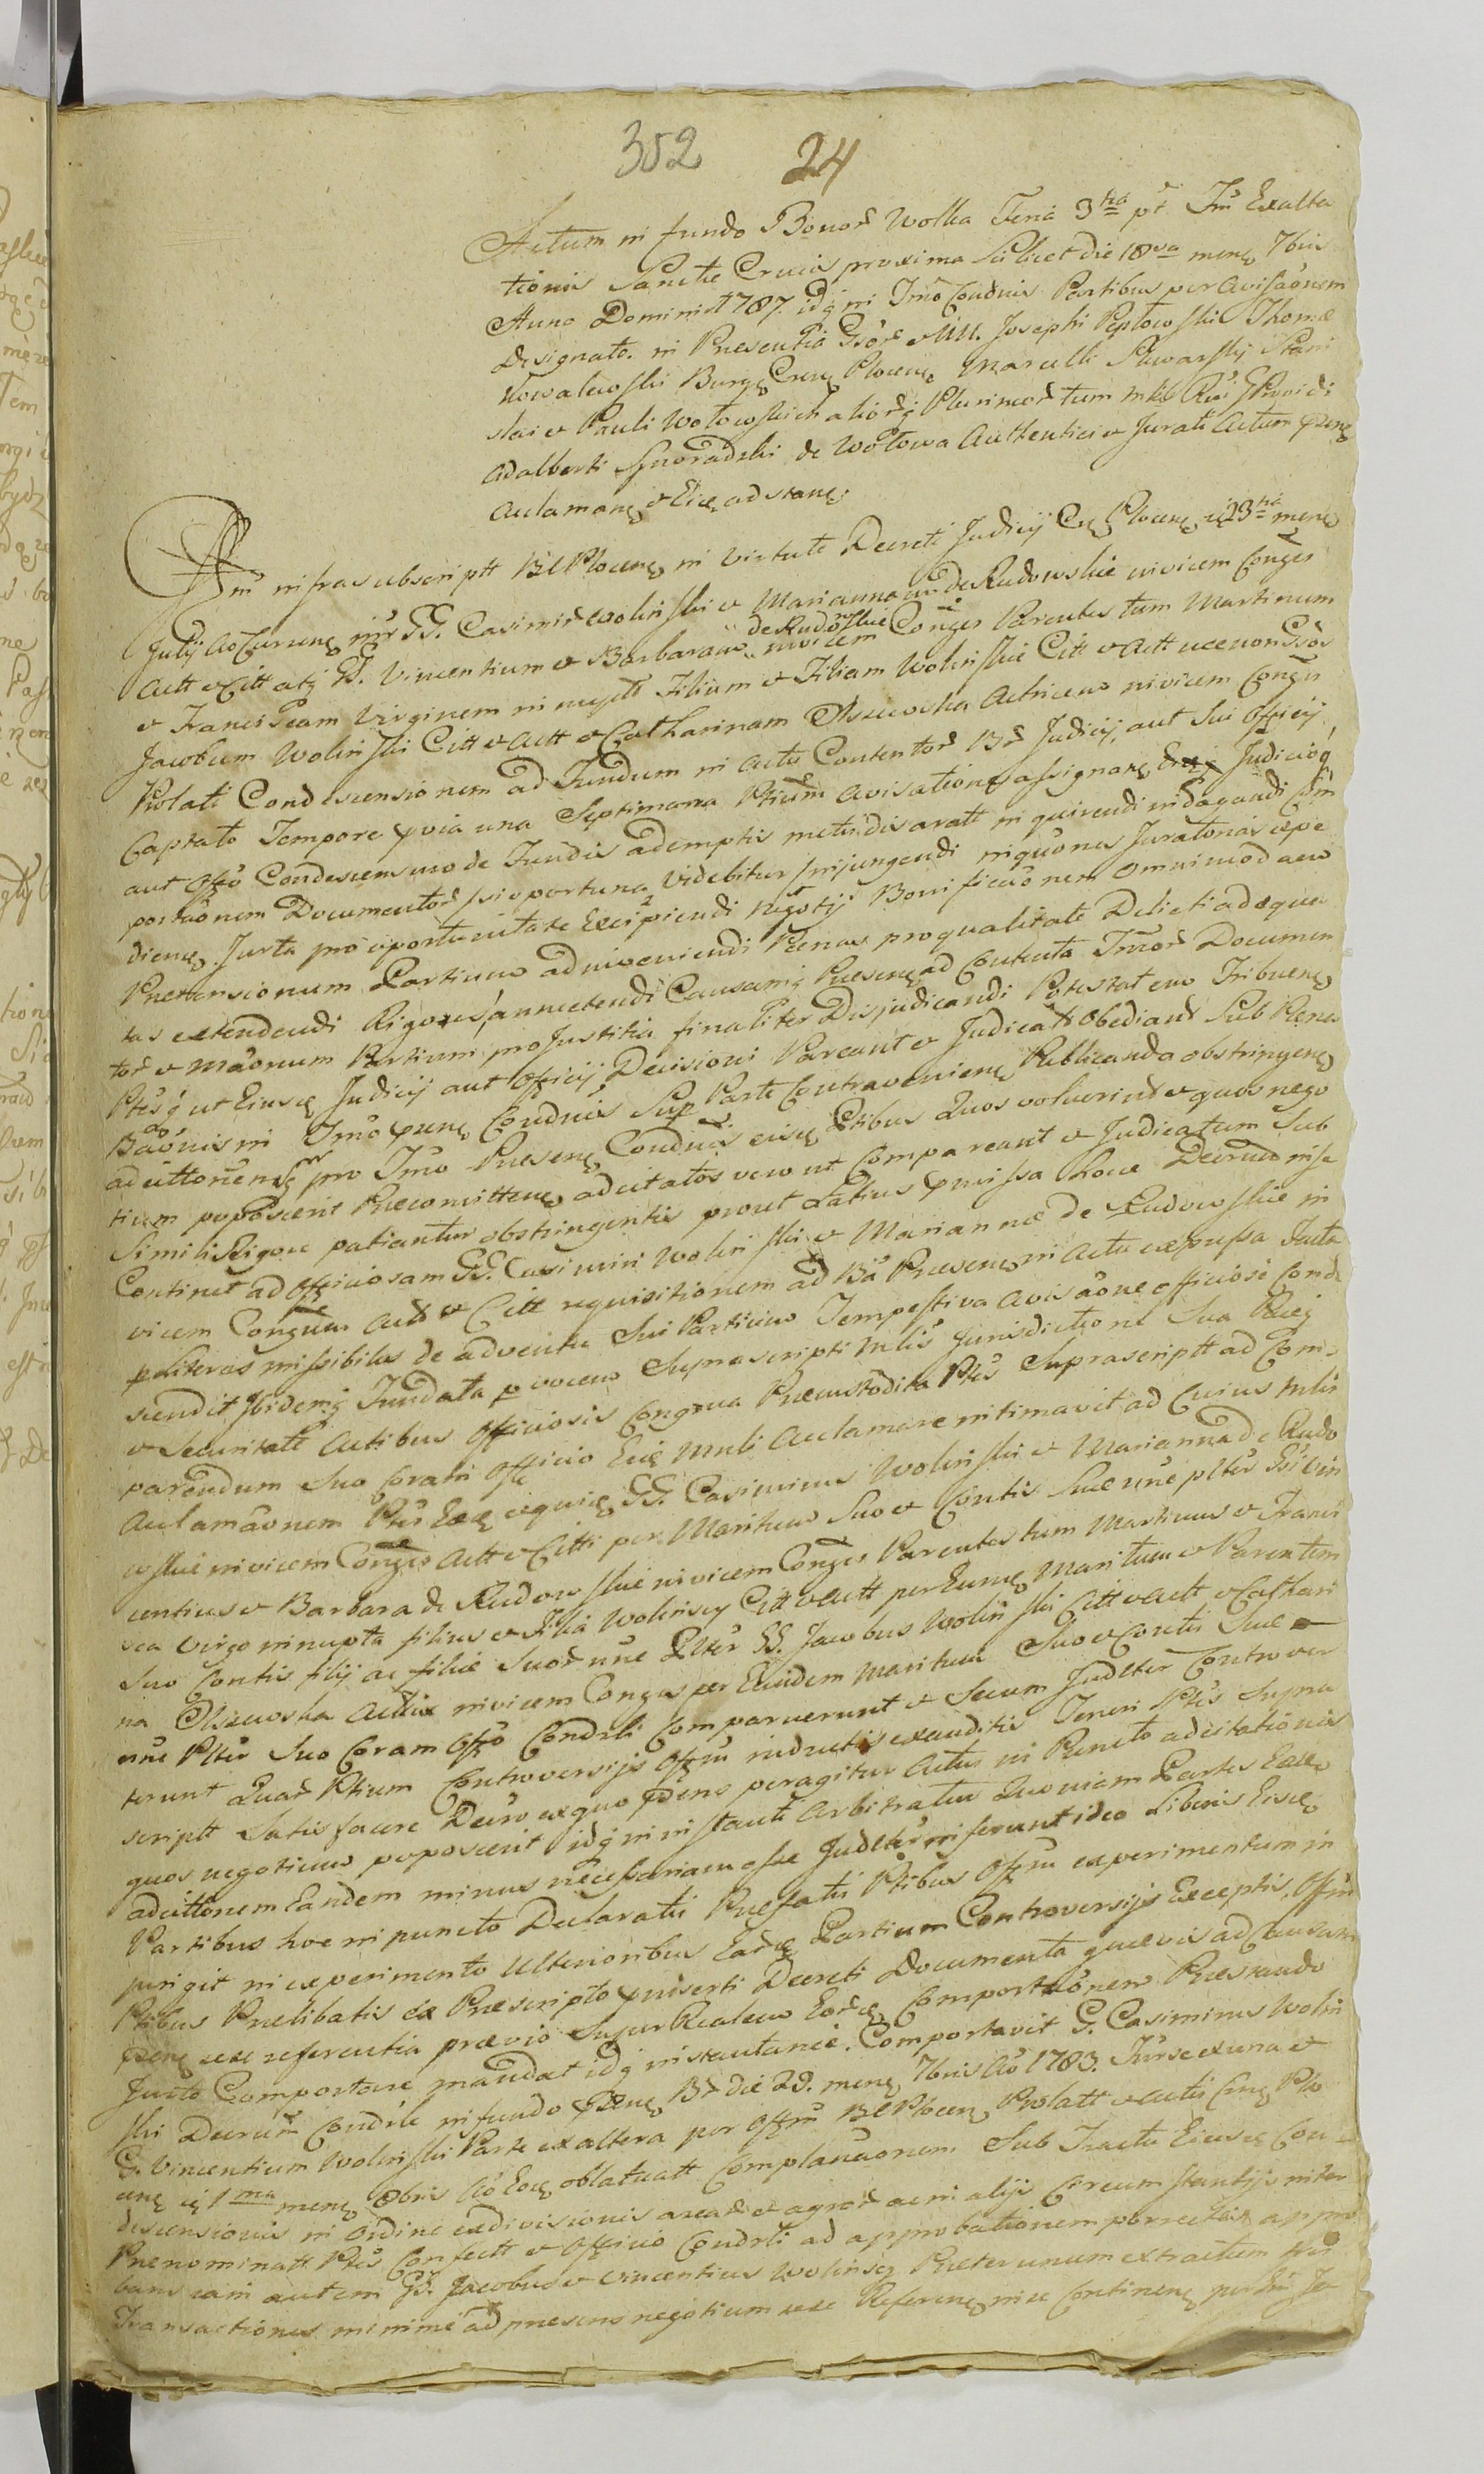 352 24
Actum in fundo Bonor Wolka Feria 3tia pt Fm Exalta
tionis Sanctae Crucis proxima scilicet die 18va menę 7bris
Anno Domini 1787. idq in Tmo Condnis Partibus per Avisaonem
Designato. in Presentia Gsor & Mll. Josephi Peptowski Thomae
Kowalewski Burgę Crenę Plocenę Marcelli Skwarskij Stani
slai & Pauli Wolowskich aliorq Plurimor tum mkl Rei Providi
Adalberti de Wolowa Authentici & Jurati Actum pręnę
Aclamanę & Eię adstanę.
infrascriptt Bl Plocenę in virtute Decreti Judicij Crę Plocenę 23tia menę
Julij Ao Currenę inr GG. Casimir Wolinski & Marianna de Rudowskie invicem Conges
Actt & Citt atq G. Vincentium & Barbaram de Rudowskie invicem Conges Parentes tum Martinum
& Franciscam Virginem innuptt Filium & Filiam Wolinskie Citt & Actt necnon Gsos
Jacobum Wolinski Citt & Actt & Catharinam Olszewska Actricem invicem Conges
Prolati Condescensionem ad Fundum in Actu Contentor Br Judicij, aut sui Officij
Captato Tempore previa una Septimana Ptium Avisatione assignanę Judicioq
aut Offo Condescensuro de Fundis ademptis metiendis aratt inquirendi indagandi Com
portaonem Documentor si oportuna videbitur injungendi inquones Juratorias expe
dienę Juxta pro oportunitate Excipiendi Negotij Bonificaonem omnimodam
Pretensionum Partium adinveniendi Penas pro qualitate Delicti adaequa
tas extendendi Rigores, annectendi Causamq Presenę ad Contenta Tmor Documen
tor & Maonum Partium pro Justitia finaliter Disjudicandi Potestatem Tribuenę
Ptesq ut Eiusę Judicij aut Officij Decisioni Pareant & Judicats Obediant Sub Pena
Baonis in Tmo prenę Condnis Sup Parte Contravenienę Publicanda obstringenę
adcittonemq pro Tmo Presenę Condnis eisę Ptibus Quos voluerint & quos nego
tium poposcerit Recomittenę adcitatos vero ut Compareant & Judicatum Sub
Simili Rigore patiantur obstringentis prout Latius premissa hocce Decrum in se
Continet ad Officiosam GG. Casimiri Wolinski & Mariannae de Rudowskie in
vicem Congum Act & Citt requisitionem ad Ba Presenę in Actu expressa Facta
p literas missibiles de adventu Sui Partium Tempestiva avisaone officiose Conde
scendit Ibidemq Fundata p vocem Suprascripti Mlis Jurisdictione Sua Pace
& Securitate Actibus Officiosis Congrua Precustodita Ptes Suprascriptt ad Com
parendum Suo Coram Officio Eię Mnli Aclamare intimavit ad Cuius Mlis
Aclamaonem Ptes Eaeę equię GG. Casimirus Wolinski & Marianna de Rudo
wskie invicem Conges Actt & Citti per Maritum Suo & Contis Suae une pltr Gsi Vin
centius & Barbara de Rudowskie invicem Conges Parentes tum Martinus & Franci
sca Virgo innupta filius & Filia Wolinscy Citt & Actt per Eumę Maritum & Parentem
Suo Contis filij ac filiae Suor une Pltr GG. Jacobus Wolinski Citt & Actt & Cathari
na Olszewska Actrix invicem Conges per Eundem Maritum Suo & Contis Suae
une Pltr Suo Coram Offo Condrli Comparuerunt & Secum Judlter Controver
terunt Quar Ptium Controversijs Offm inductis exauditis Teneri Ptes Supra
scriptt Satisfacere Decro ex quo prens peragitur Actus in Puncto adcitationis
quos negotium poposcerit idq in instanti Arbitratur Quoniam Partes Eaeę
adcittonem Eandem minus necessariam esse Judlter inferunt ideo Liberis Eisę
Partibus hoc in puncto Declaratis Prefatis Ptibus Offm experimentum in
jungit in experimento Ulterioribus Earę Partium Controversijs Exceptis, Offm
Ptibus Prelibatis ex Prescripto preinserti Decreti Documenta quaevis ad Causam
prenę sese referentia praevio Super Realem Eorę Comportaonem Prestando
Jurto Comportare mandat idq instantanee. Comportavit G. Casimirus Wolin
ski Decrum Condrle in fundo prenę Br die 29. menę 7bris Ao 1783. Inr se ex una &
G. Vincentium Wolinski Parte ex altera per Offm Bl Plocenę Prolatt & Actis Crę Plo
cenę ię 1ma menę 8bris Ao Eoę oblatuatt Complanaonem Sub Tractu Eiusę Con
descensionis in Ordine exdivisionis arear & agror ac in alijs Circumstantijs inter
Prenominatt Ptes Confectt & Officio Condrli ad approbationem porrectt appro
bans eam autem GG. Jacobus & Vincentius Wolinscy Preter unum extractum tres
Transactiones minime ad presens negotium sese Referenę nec Continenę